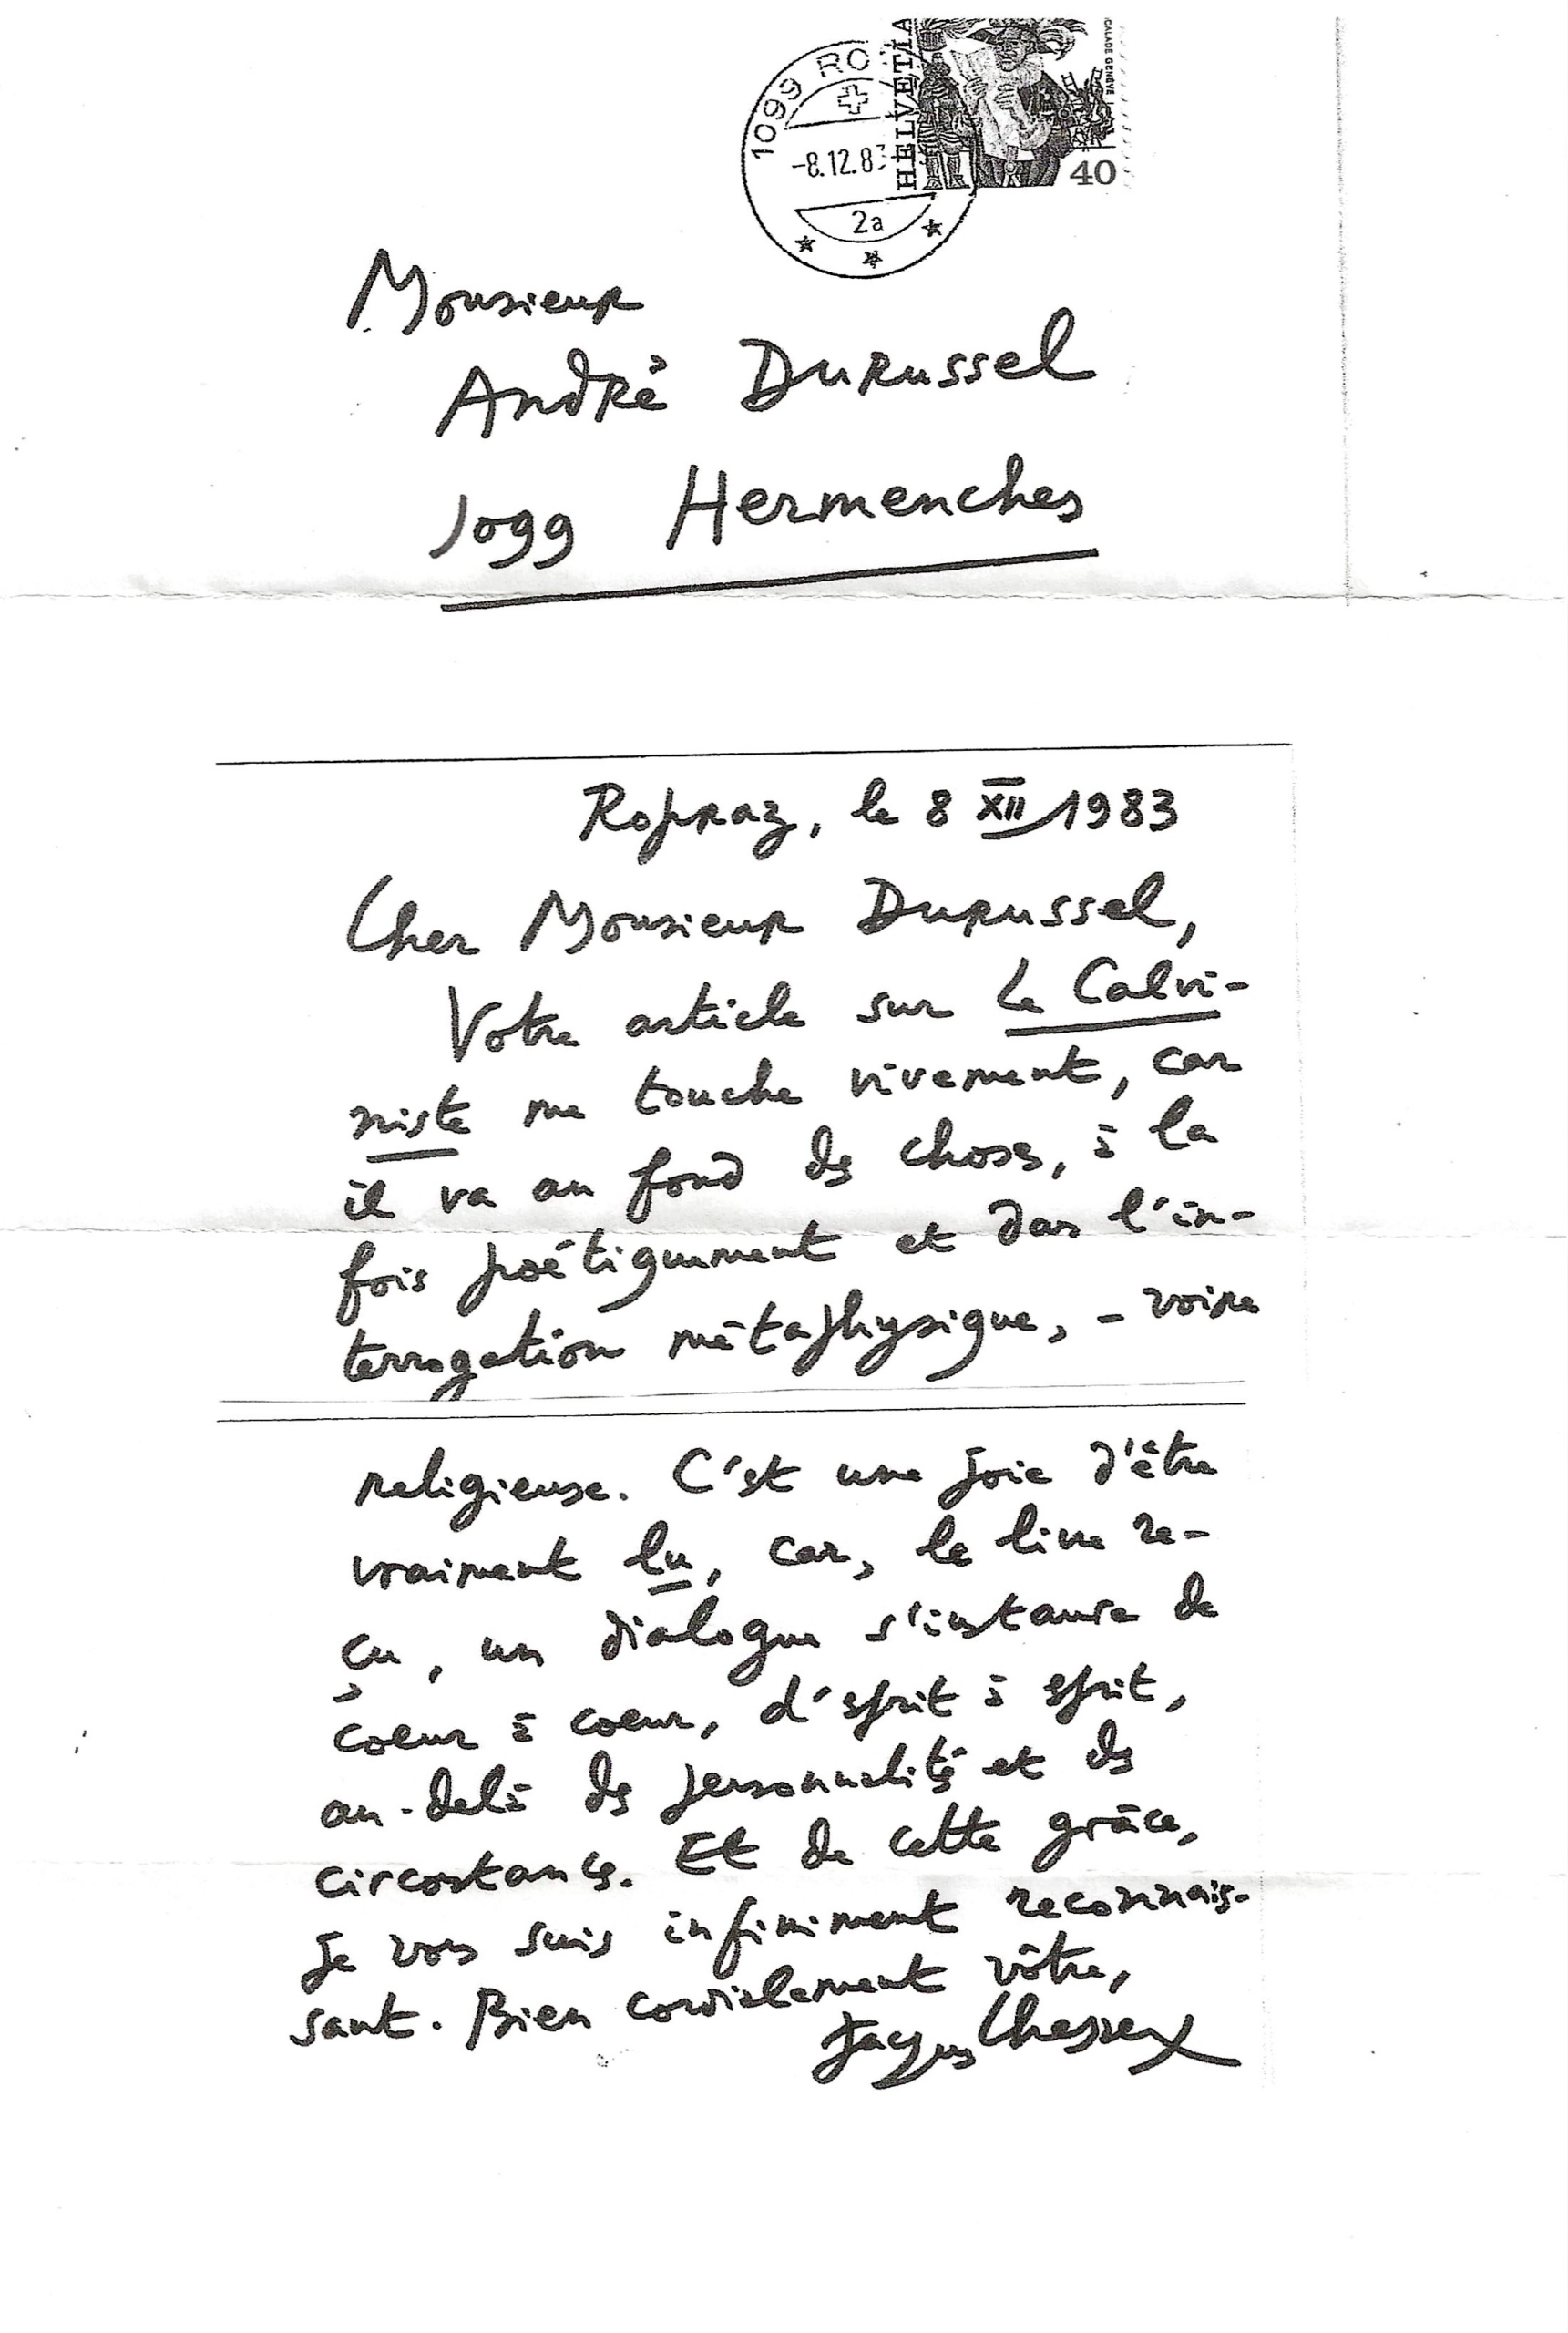 1099 RO
-8.12.83
2a
HELVETIA
CALADE GENÈVE
40
Monsieur
André Durussel
1099 Hermenches
Ropraz, le 8 XII 1983
Cher Monsieur Durussel,
Votre article sur Le Calvi-
niste me touche vivement, car
il va au fond des choses, à la
fois poétiquement et dans l'in-
terrogation métaphysique, – voire
religieuse. C'est une joie d'être
vraiment lu, car, le livre re-
çu, un dialogue s'instaure de
coeur à coeur, d'esprit à esprit,
au-delà des personnalités et des
circonstances. Et de cette grâce,
je vous suis infiniment reconnais-
sant. Bien cordialement vôtre,
Jacques Chessex